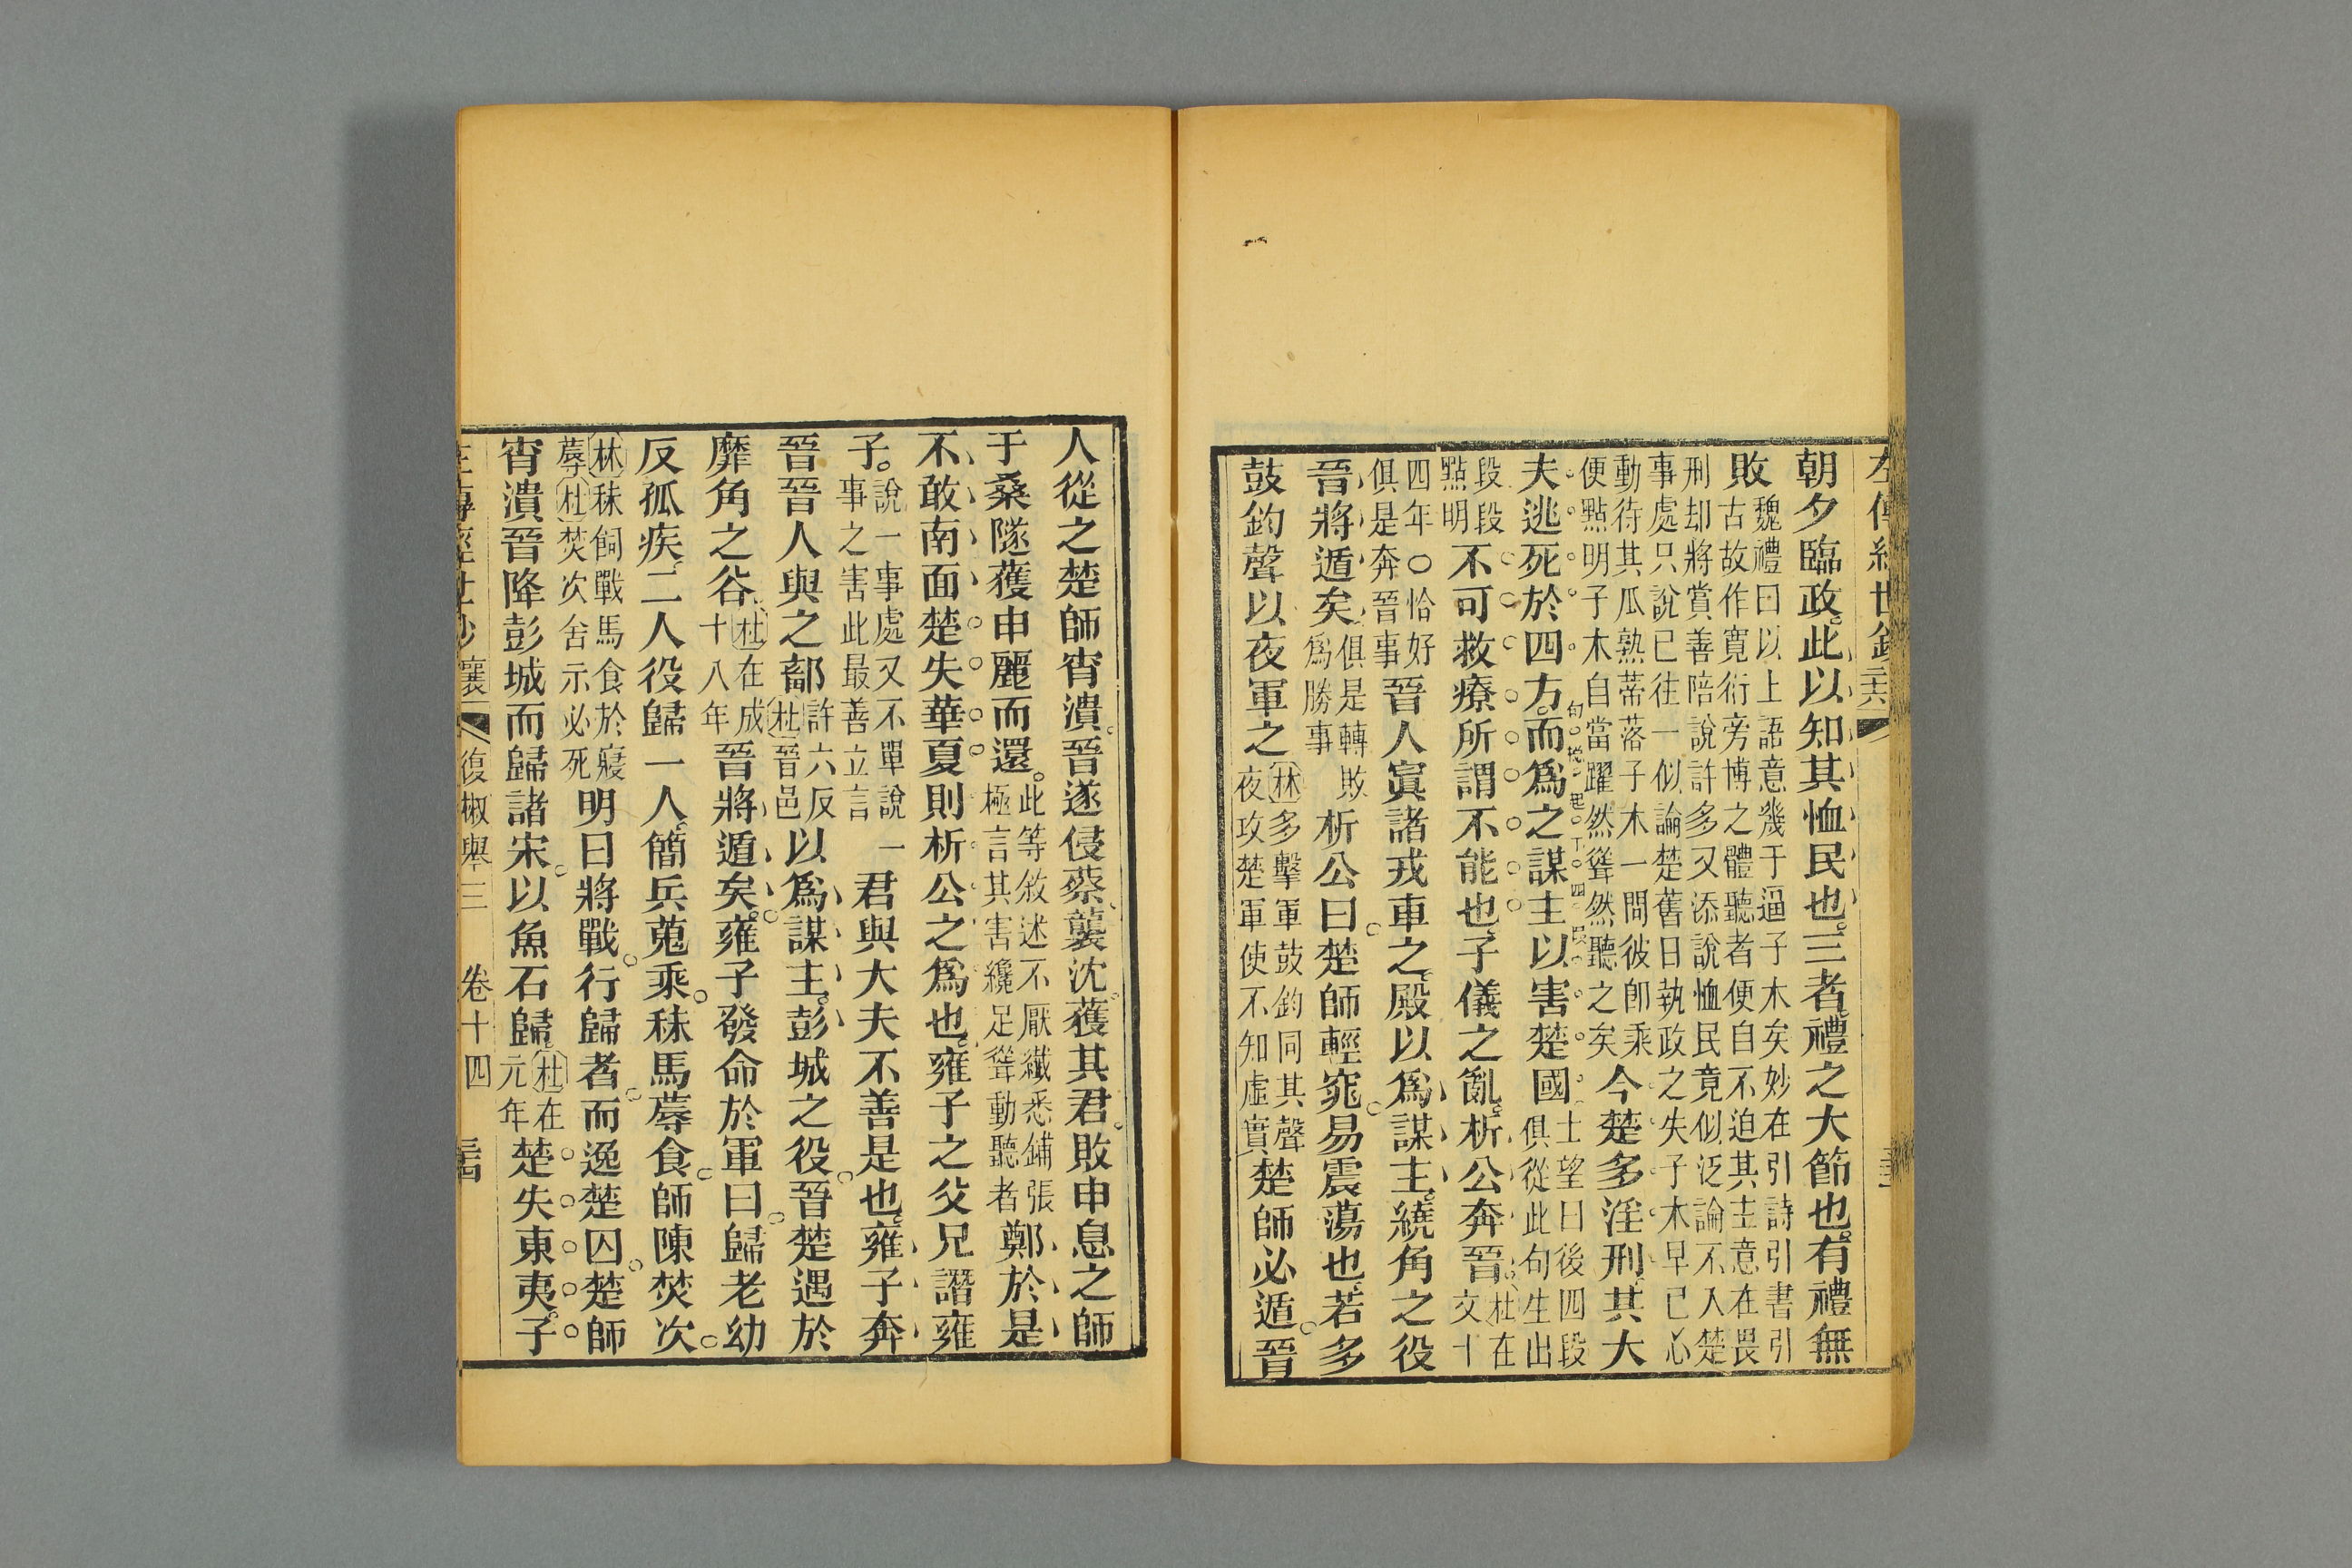 朝夕臨政此以知其恤民也三者禮之大節也有禮無
敗魏禮曰以上語意幾于逼子木矣妙在引詩引書引
古故作寬衍旁博之體聽者便自不迫其主意在畏
刑却將賞善陪說許多又添說恤民竟似泛論不入楚
事處只說已往一似論楚舊日執政之失子木早已心
動待其瓜熟蒂落子木一問彼卽乘
便點明子木自當躍然聳然聽之矣今楚多淫刑其大
夫逃死於四方而爲之謀主以害楚國士望曰後四段
俱從此句生出
段段
點明不可救療所謂不能也子儀之亂析公奔晉杜在
文十
四年○恰好
俱是奔晉事晉人寘諸戎車之殿以爲謀主繞角之役
晉將遁矣俱是轉敗
爲勝事析公曰楚師輕窕易震蕩也若多
鼓鈞聲以夜軍之林多擊軍鼓鈞同其聲
夜攻楚軍使不知虛實楚師必遁晉
人從之楚師宵潰晉遂侵蔡襲沈獲其君敗申息之師
于桑隧獲申麗而還此等敘述不厭纖悉鋪張
極言其害纔足聳動聽者鄭於是
不敢南面楚失華夏則析公之爲也雍子之父兄譖雍
子說一事處又不單說
事之害此最善立言一君與大夫不善是也雍子奔
晉晉人與之鄐許六反
杜晉邑以爲謀主彭城之役晉楚遇於
靡角之谷杜在成
十八年晉將遁矣雍子發命於軍曰歸老幼
反孤疾二人役歸一人簡兵蒐乘秣馬蓐食師陳焚次
林秣飼戰馬食於寢
蓐杜焚次舍示必死明日將戰行歸者而逸楚囚楚師
宵潰晉降彭城而歸諸宋以魚石歸杜在
元年楚失東夷子
復椒舉三 卷十四